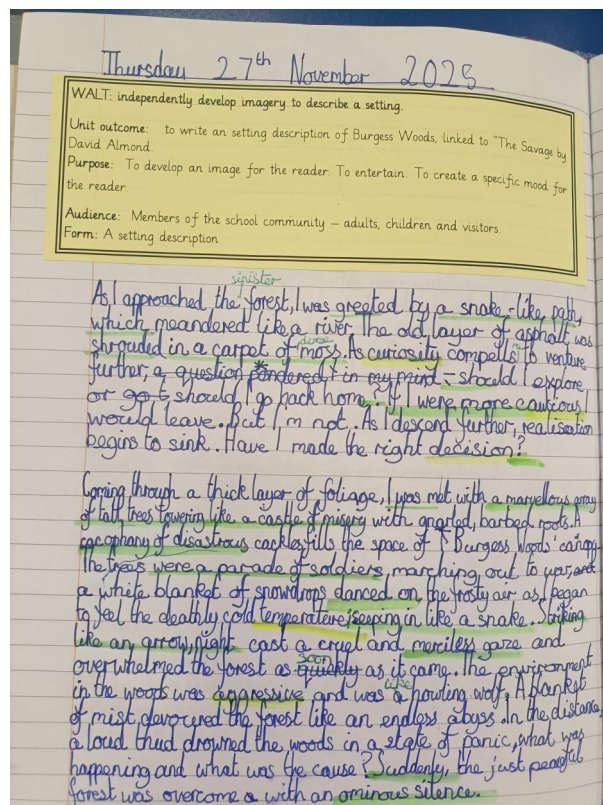 Thursday 27th November 2025
WALT: independently develop imagery to describe a setting.
Unit outcome: to write an setting description of Burgess Woods, linked to "The Savage by
David Almond.
Purpose: To develop an image for the reader. To entertain. To create a specific mood for
the reader.
Audience: Members of the school community – adults, children and visitors.
Form: A setting description.
sinister
As I approached the forest, I was greeted by a snake-like path,
which meandered like a river. The old layer of asphalt was
shrouded in a carpet of moss. As curiosity compells to venture
further, a question pondered in my mind – should I explore
or got should I go back home. If I were more cautious, I
would leave. But I'm not. As I descend further, realisation
begins to sink. Have I made the right decision?
Coming through a thick layer of foliage, I was met with a marvellous array
of tall trees towering like a castle of misery with gnarled, barbed roots. A
cacophany of disastrous cackles fills the space of Burgess Woods' canopy.
The trees were a parade of soldiers, marching out to war, and
a white blanket of snowdrops danced on the frosty air as I began
to feel the deathly cold temperature seeping in like a snake. Striking
like an arrow, night cast a cruel and merciless gaze and
soon
overwhelmed the forest as quickly as it came. The environment
like
in the woods was aggressive and was a howling wolf. A blanket
of mist devoured the forest like an endless abyss. In the distance,
a loud thud drowned the woods in a state of panic, what was
happening and what was the cause? Suddenly, the just peaceful
forest was overcome a with an ominous silence.